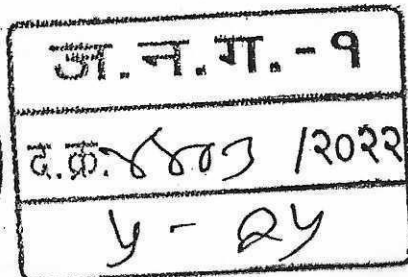 अ.न.ग.-१
द.क्र. ४४०३ /२०२२
५ - २५